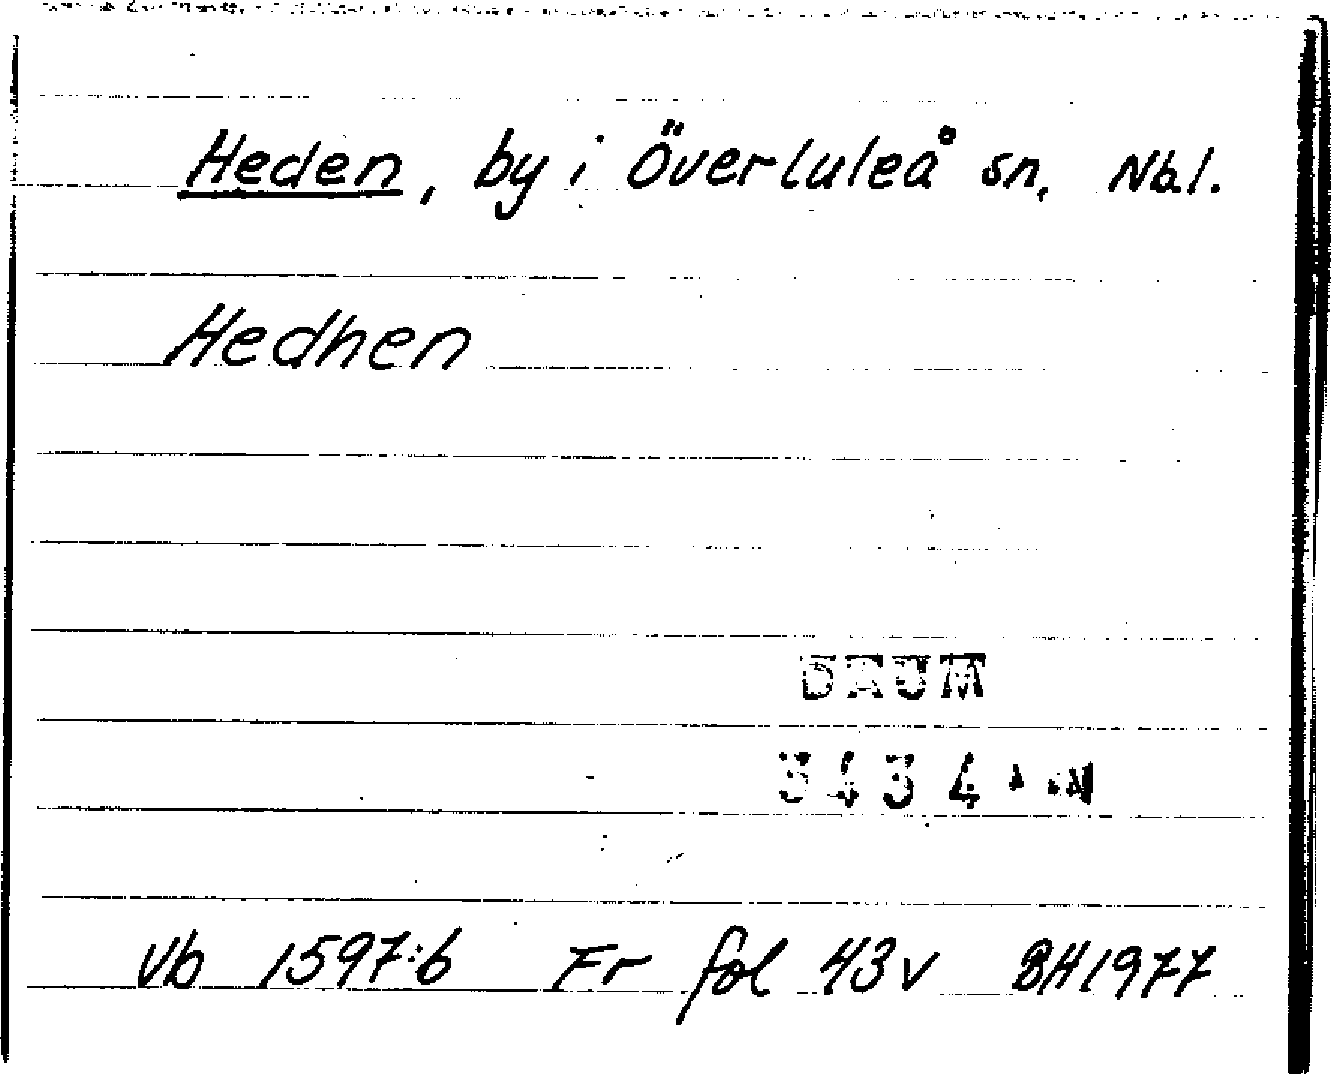 Heden, by i Överluleå sn, Nb.l.
Hedhen
DAUM
3434
Vb 1597:6 Fr fol 43v BH1977